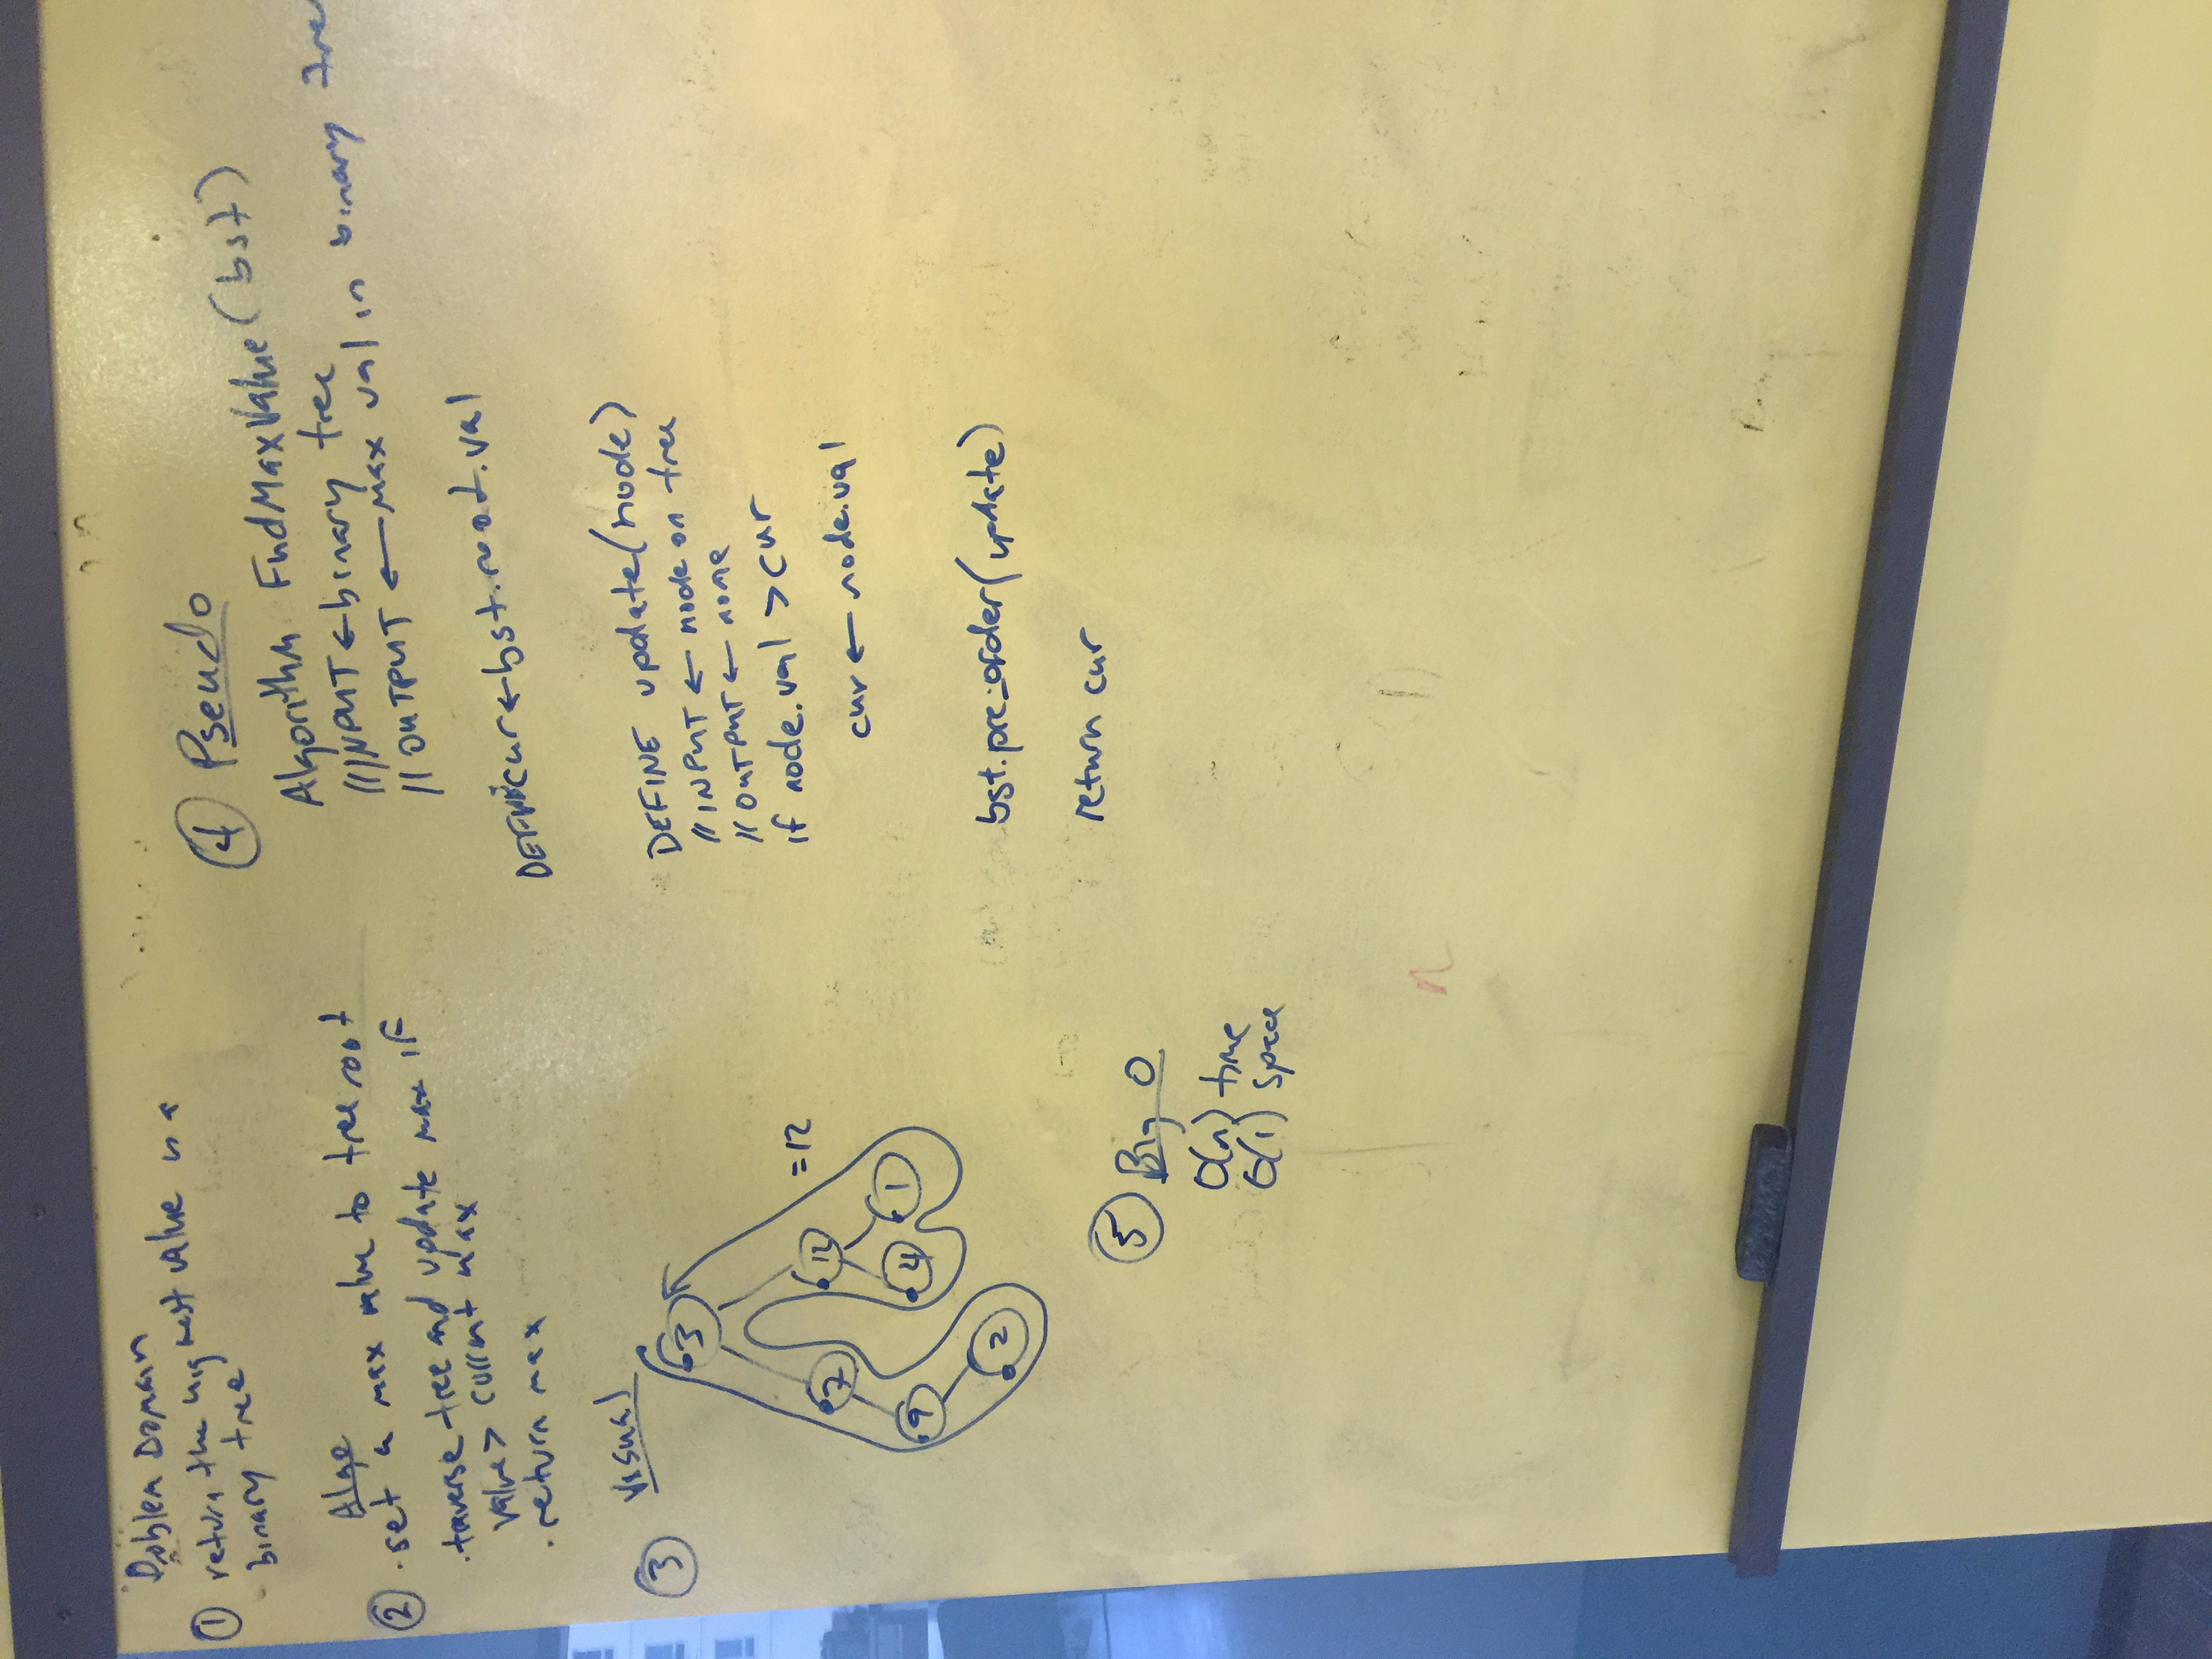 Problem Domain
① return the highest value in a
binary tree
Algo
② · set a max value to tree root
· traverse tree and update max if
value > current max
· return max
③ Visual
3
7 12
9 4 1
2
= 12
④ Pseudo
Algorithm FindMaxValue(bst)
// INPUT ← binary tree
// OUTPUT ← max val in binary tree
DEFINE cur ← bst.root.val
DEFINE update(node)
// INPUT ← node on tree
// OUTPUT ← none
if node.val > cur
cur ← node.val
bst.pre_order(update)
return cur
⑤ Big O
O(n) time
O(1) space
n